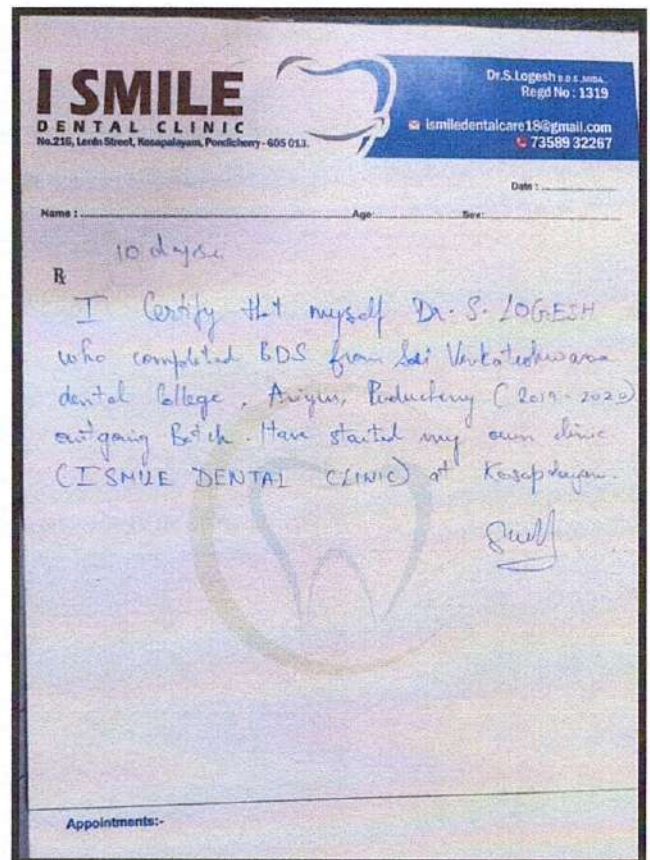 I SMILE
DENTAL CLINIC
No.216, Lenin Street, Kosapalayam, Pondicherry - 605 013.
Dr.S.Logesh B.D.S.,MIDA.,
Regd No : 1319
ismiledentalcare18@gmail.com
73589 32267
Date :
Name : Age: Sex:
10
R
I Certify that myself Dr. S. LOGESH
who completed BDS from Sai Venkateshwaraa
dental College, Ariyur, Puducherry (2019-2020)
outgoing Batch. Have started my own clinic
(ISMILE DENTAL CLINIC) at Kosapalayam.
Appointments:-